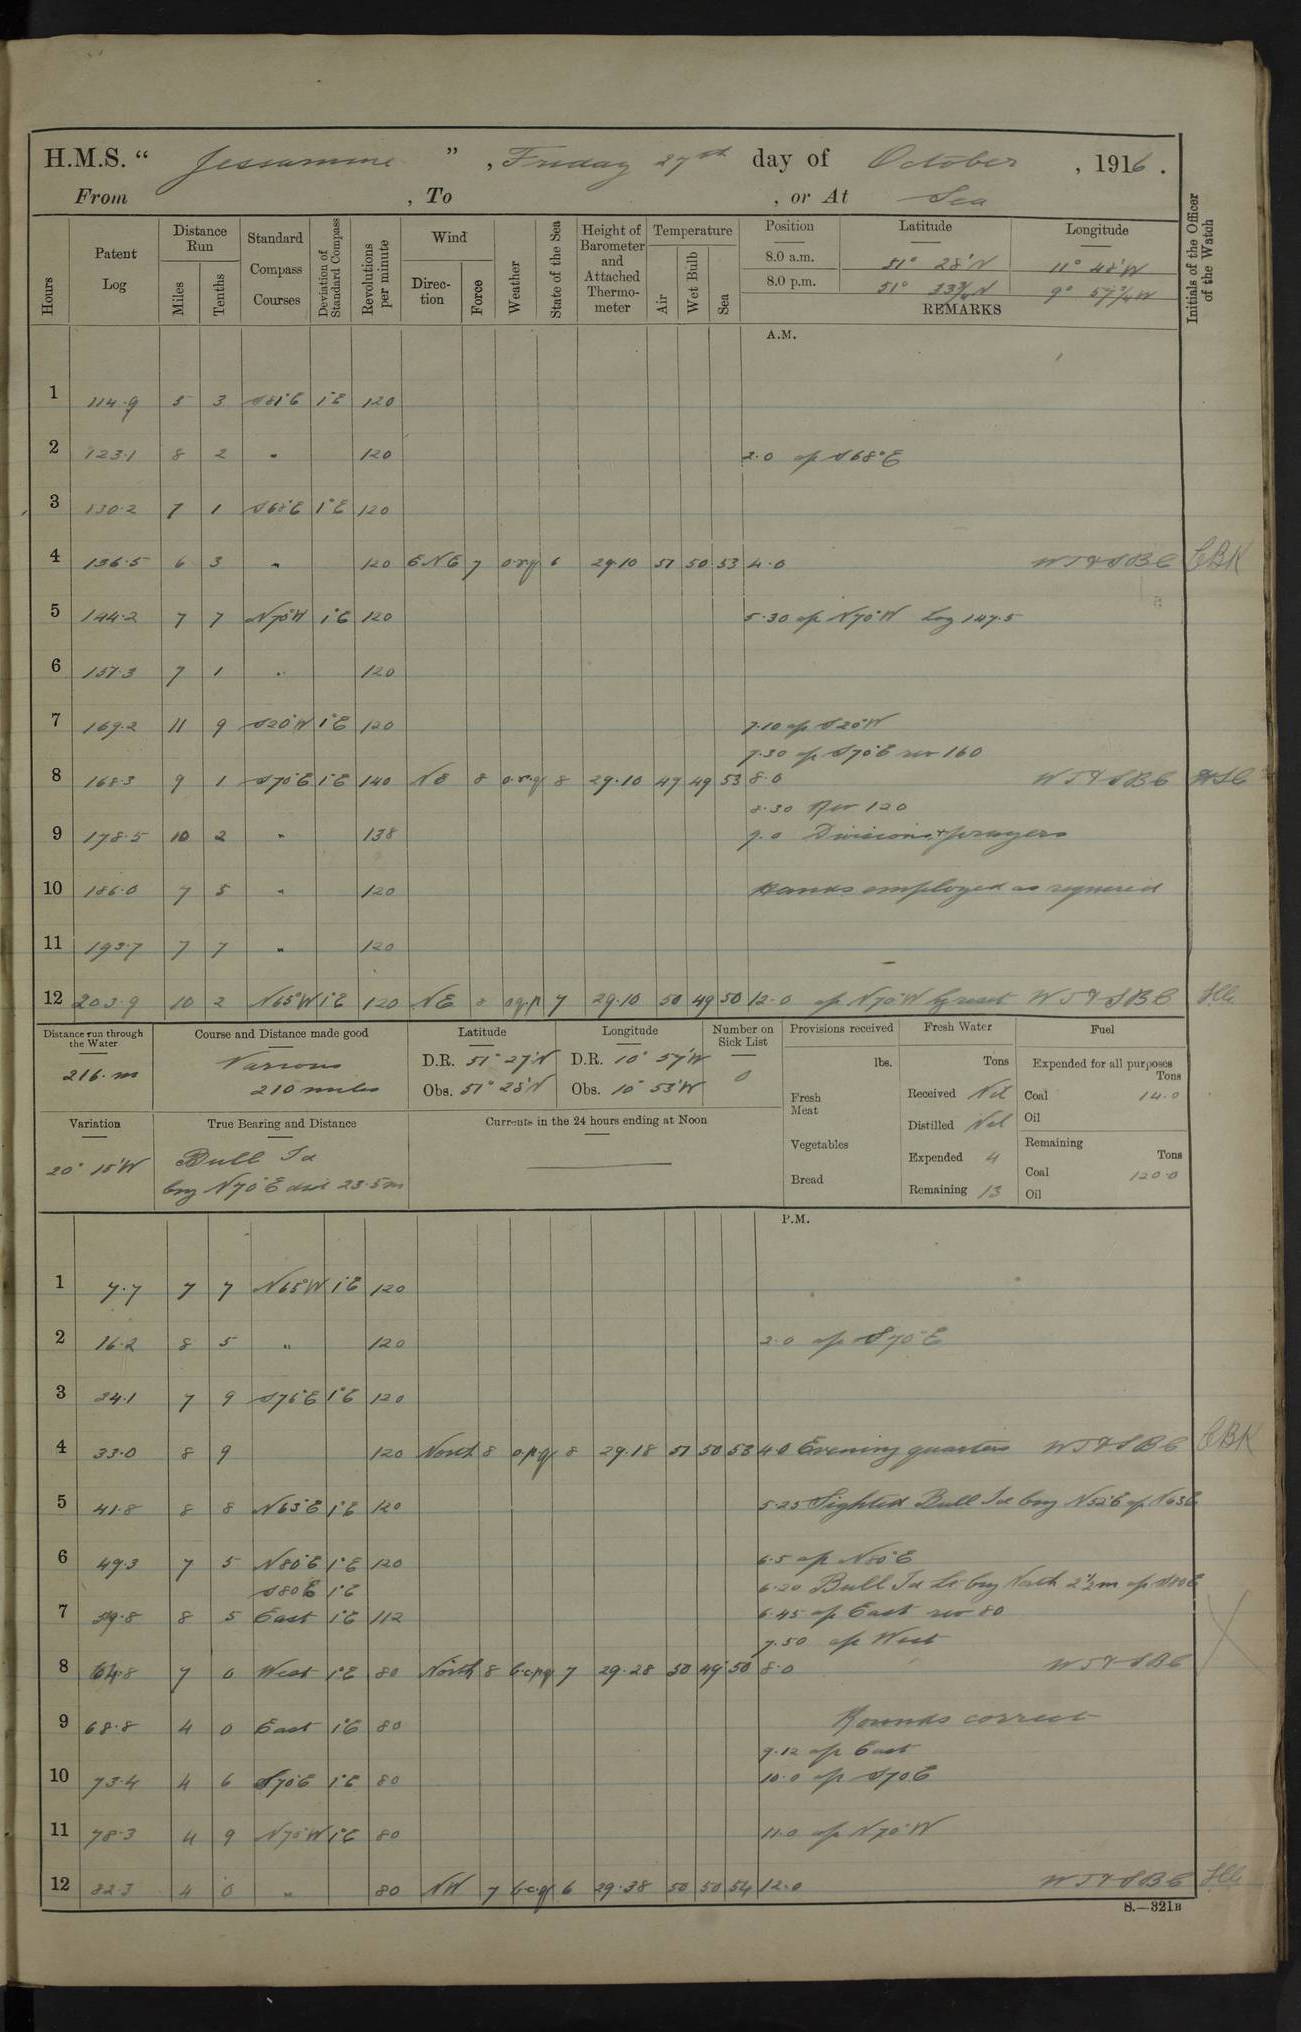 H.M.S. " Jessamine " , Friday 27th day of October , 1916 .
From , To , or At Sea
Hours
Patent Log
Distance Run
Miles
Tenths
Standard Compass Courses
Deviation of Standard Compass
Revolutions per minute
Wind
Direction
Force
Weather
State of the Sea
Height of Barometer and Attached Thermometer
Temperature
Air
Wet Bulb
Sea
Position Latitude Longitude
8.0 a.m. 51° 28'N 11° 48'W
8.0 p.m. 51° 33¾N 9° 57¾W
REMARKS
Initials of the Officer of the Watch
A.M.
1 114.9 5 3 S81°E 1°E 120
2 123.1 8 2 " 120 2.0 a/c S68°E
3 130.2 7 1 S68°E 1°E 120
4 136.5 6 3 " 120 ENE 7 o.r.q 6 29.10 51 50 53 4.0 WT&SBC CBK
5 144.2 7 7 N70°W 1°E 120 5.30 a/c N70°W Log 147.5
6 157.3 7 1 " 120
7 169.2 11 9 S20°W 1°E 120 7.10 a/c S20°W
7.30 a/c S70°E rev 160
8 168.3 9 1 S70°E 1°E 140 NE 8 o.r.q 8 29.10 47 49 53 8.0 WT&SBC
8.30 Rev 120
9 178.5 10 2 " 138 9.0 Divisions & prayers
10 186.0 7 5 " 120 Hands employed as required
11 193.7 7 7 " 120
12 203.9 10 2 N65°W 1°E 120 NE oq.p 7 29.10 50 49 50 12.0 a/c N70°W WT&SBC
Distance run through the Water
216. m
Course and Distance made good
Various
210 miles
Latitude
D.R. 51° 27'N
Obs. 51° 28'N
Longitude
D.R. 10° 57'W
Obs. 10° 53'W
Number on Sick List
0
Provisions received
lbs.
Fresh Meat
Vegetables
Bread
Fresh Water
Tons
Received Nil
Distilled Nil
Expended 4
Remaining 13
Fuel
Expended for all purposes
Tons
Coal 14.0
Oil
Remaining
Tons
Coal 120.0
Oil
Variation
20° 15'W
True Bearing and Distance
Bull Id
brg N70°E dist 23.5m
Currents in the 24 hours ending at Noon
P.M.
1 7.7 7 7 N65°W 1°E 120
2 16.2 8 5 " 120 2.0 a/c S70°E
3 24.1 7 9 S75°E 1°E 120
4 33.0 8 9 120 North 8 o.p.q 8 29.18 51 50 53 4.0 Evening quarters WT&SBC CBK
5 41.8 8 8 N63°E 1°E 120 5.25 Sighted Bull Id brg N52°E a/c N63E
6 49.3 7 5 N80°E 1°E 120 6.5 a/c N80°E
S80E 1°E 6.20 Bull Id Lt brg North 2½m a/c S80E
7 59.8 8 5 East 1°E 112 6.45 a/c East rev 80
7.50 a/c West
8 64.8 7 0 West 1°E 80 North 8 b.c.p.q 7 29.28 50 49 50 8.0 WT&SBC
9 68.8 4 0 East 1°E 80 Rounds correct
9.12 a/c East
10 73.4 4 6 S70°E 1°E 80 10.0 a/c S70E
11 78.3 4 9 N70°W 1°E 80 11.0 a/c N70°W
12 82.3 4 0 " 80 NW 7 b.c.q 6 29.38 50 50 54 12.0 WT&SBC
S.—321B